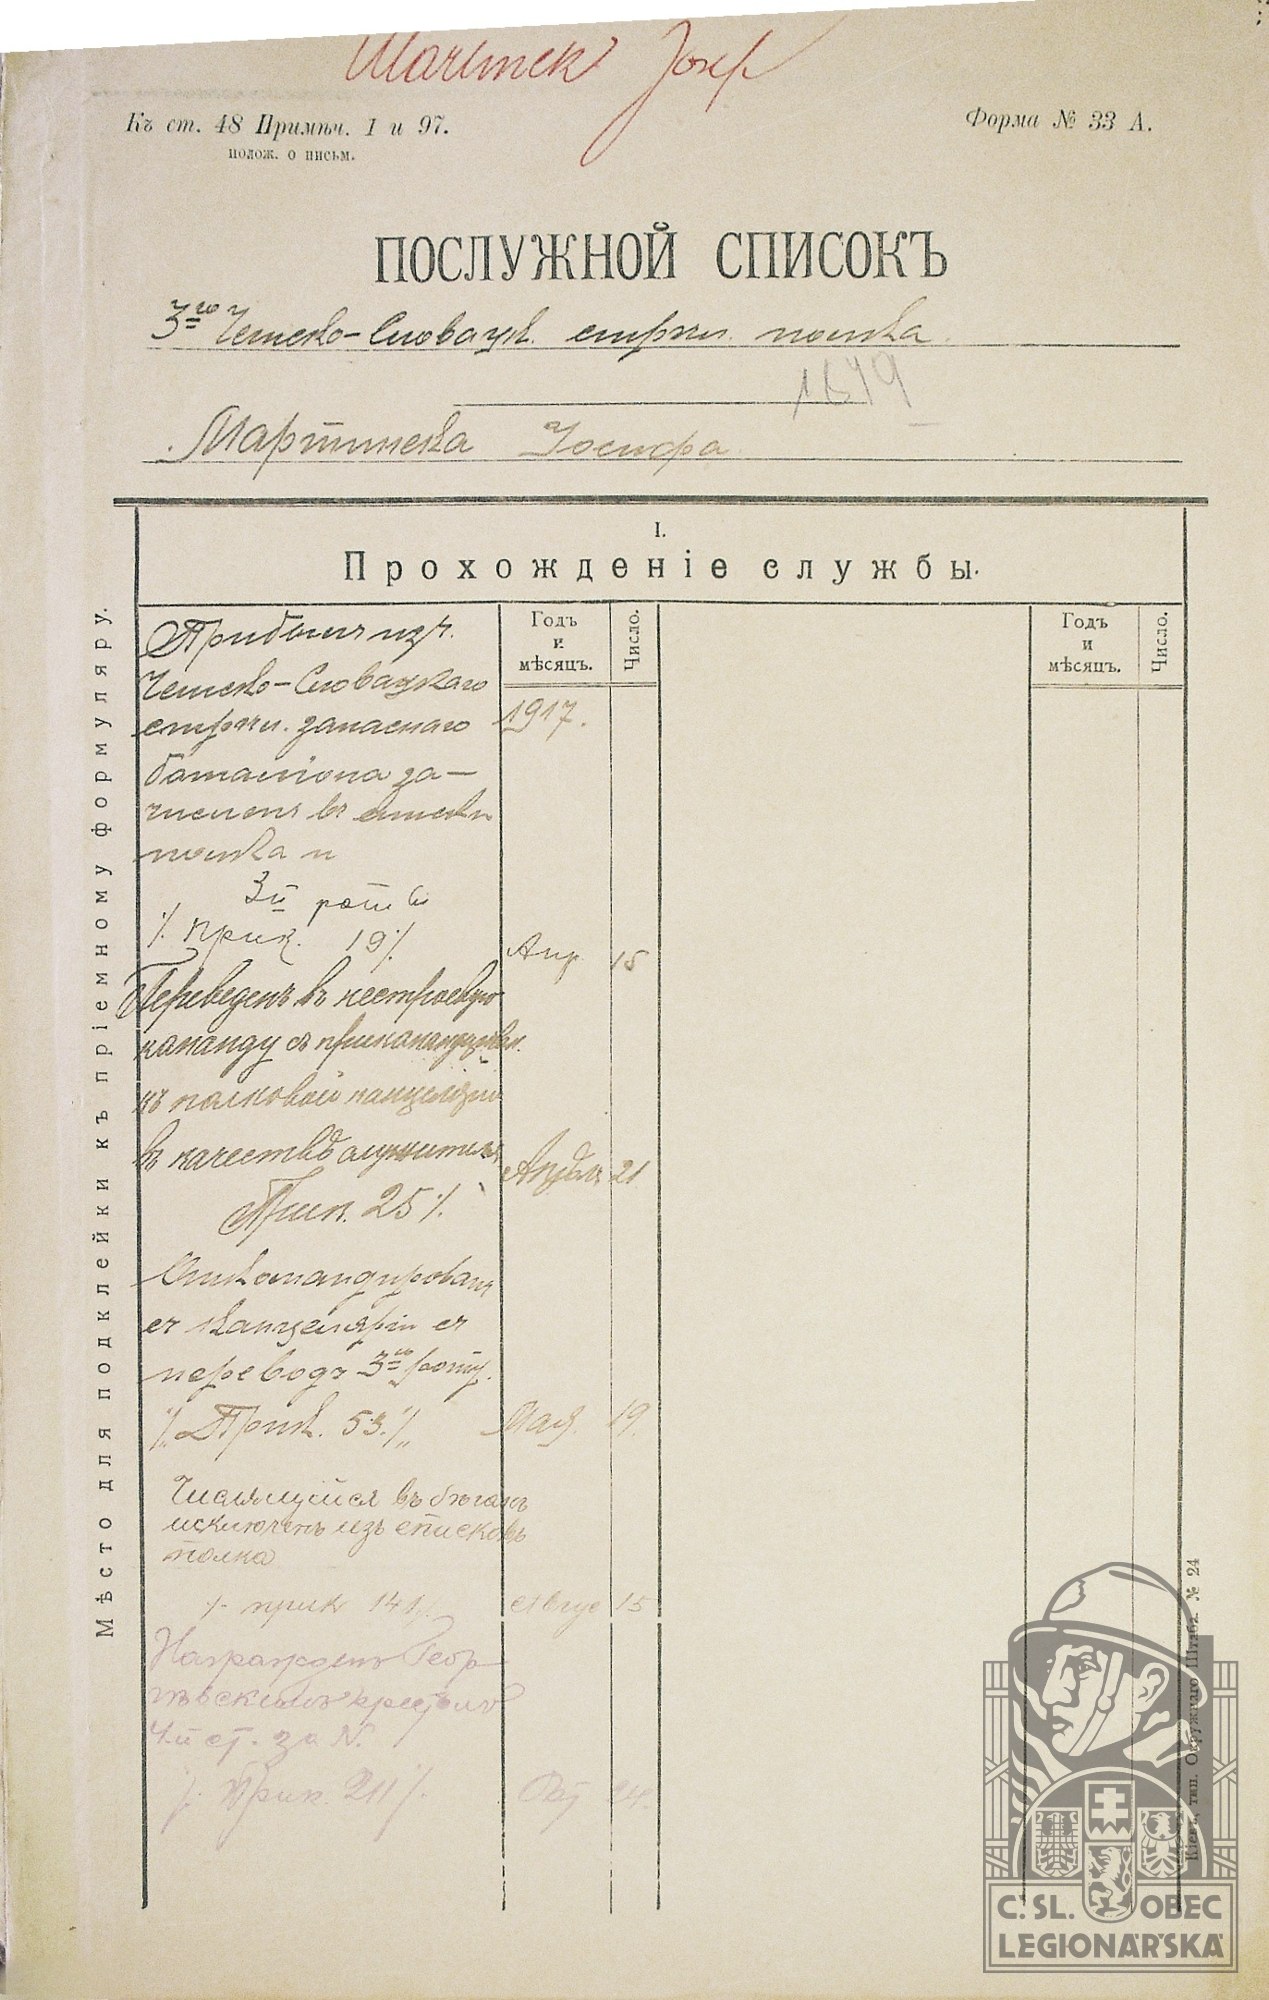 Martinek Josef
Къ ст. 48 Примѣч. 1 и 97.
полож. о письм.
Форма № 33 А.
ПОСЛУЖНОЙ СПИСОКЪ
3го Чешско-Словацк. стрѣлк. полка
1679
Мартинека Іосифа
I.
Прохожденіе службы.
Годъ и мѣсяцъ.
Число.
Годъ и мѣсяцъ.
Число.
Прибылъ изъ
Чешско-Словацкаго
стрѣлк. запаснаго 1917.
баталіона за-
численъ въ списки
полка и
3й роты
/. Прик. 19 /. Апр 15
Переведенъ въ нестроевую
команду съ прикомандирован.
къ полковой канцеляріи
въ качествѣ служителя Апрѣль 21
Прик. 25 /.
Откомандированъ
съ канцеляріи съ
переводъ 3ю роту.
/. Прик. 53. /. Мая. 19.
Числящійся въ бѣгахъ
исключенъ изъ списковъ
полка
/. прик 141 /. Авгус 15
Награжденъ Геор-
гіевскимъ крестомъ
4й ст. за N.
/. Прик. 211 /. Окт 24.
Мѣсто для подклейки къ пріемному формуляру.
Кіевъ, тип. Окружнаго Штаба. № 24
Č. SL. OBEC
LEGIONÁŘSKÁ